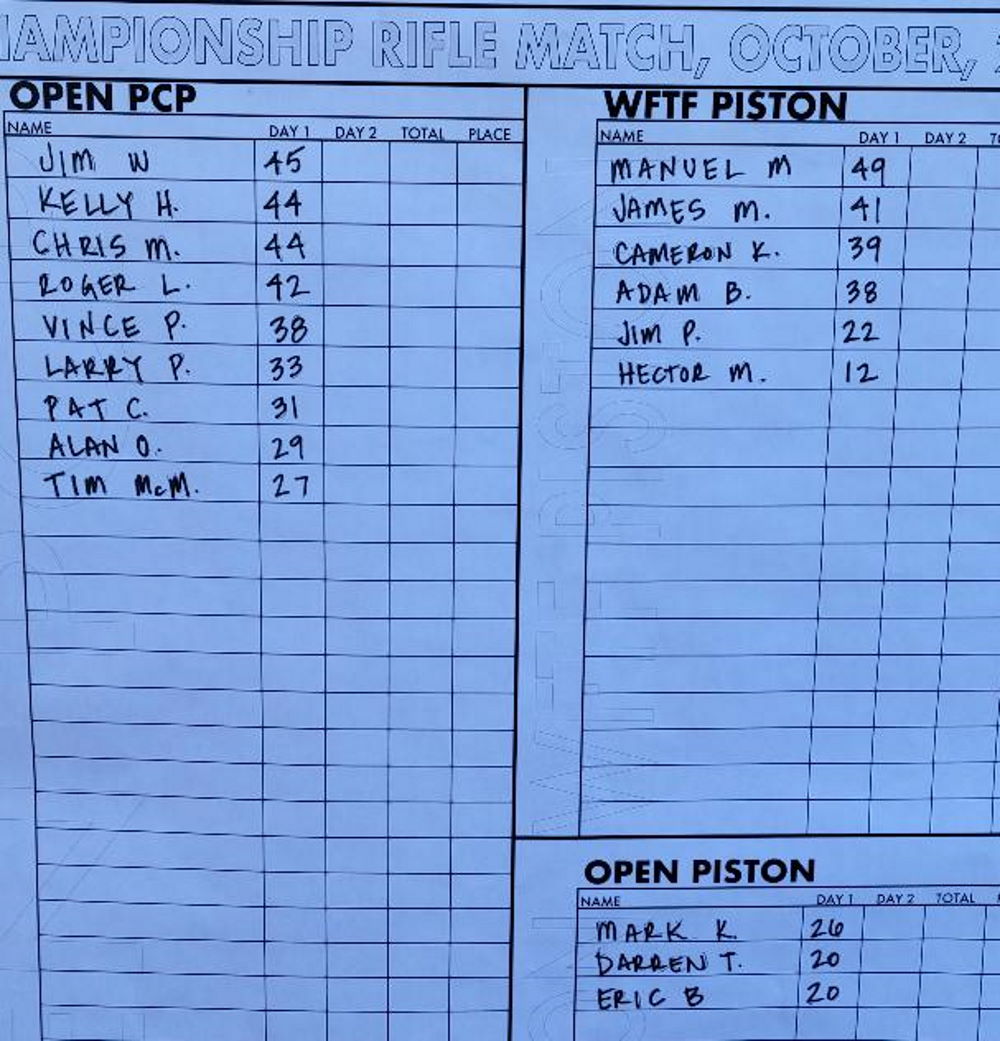 CHAMPIONSHIP RIFLE MATCH, OCTOBER,
OPEN PCP
NAME DAY 1 DAY 2 TOTAL PLACE
JIM W 45
KELLY H. 44
CHRIS M. 44
ROGER L. 42
VINCE P. 38
LARRY P. 33
PAT C. 31
ALAN O. 29
TIM McM. 27
WFTF PISTON
NAME DAY 1 DAY 2
MANUEL M 49
JAMES M. 41
CAMERON K. 39
ADAM B. 38
JIM P. 22
HECTOR M. 12
WFTF PISTON
OPEN PISTON
NAME DAY 1 DAY 2 TOTAL
MARK K. 26
DARREN T. 20
ERIC B 20